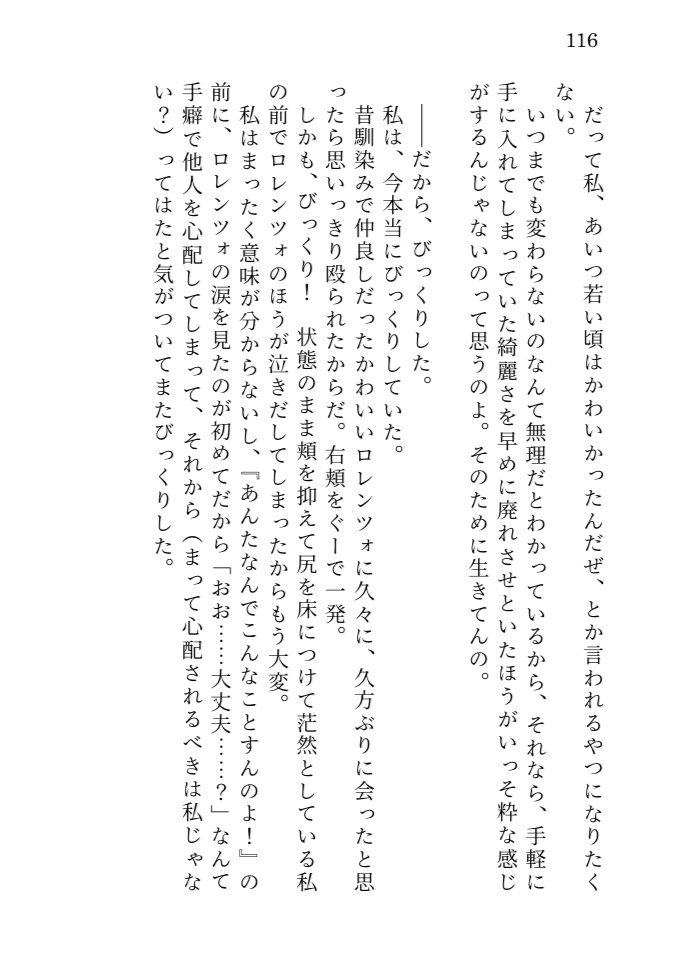 116
　だって私、あいつ若い頃はかわいかったんだぜ、とか言われるやつになりたく
ない。
　いつまでも変わらないのなんて無理だとわかっているから、それなら、手軽に
手に入れてしまっていた綺麗さを早めに廃れさせといたほうがいっそ粋な感じ
がするんじゃないのって思うのよ。そのために生きてんの。
　――だから、びっくりした。
　私は、今本当にびっくりしていた。
　昔馴染みで仲良しだったかわいいロレンツォに久々に、久方ぶりに会ったと思
ったら思いっきり殴られたからだ。右頬をぐーで一発。
　しかも、びっくり！　状態のまま頬を抑えて尻を床につけて茫然としている私
の前でロレンツォのほうが泣きだしてしまったからもう大変。
　私はまったく意味が分からないし、『あんたなんでこんなことすんのよ！』の
前に、ロレンツォの涙を見たのが初めてだから「おお……大丈夫……？」なんて
手癖で他人を心配してしまって、それから（まって心配されるべきは私じゃな
い？）ってはたと気がついてまたびっくりした。